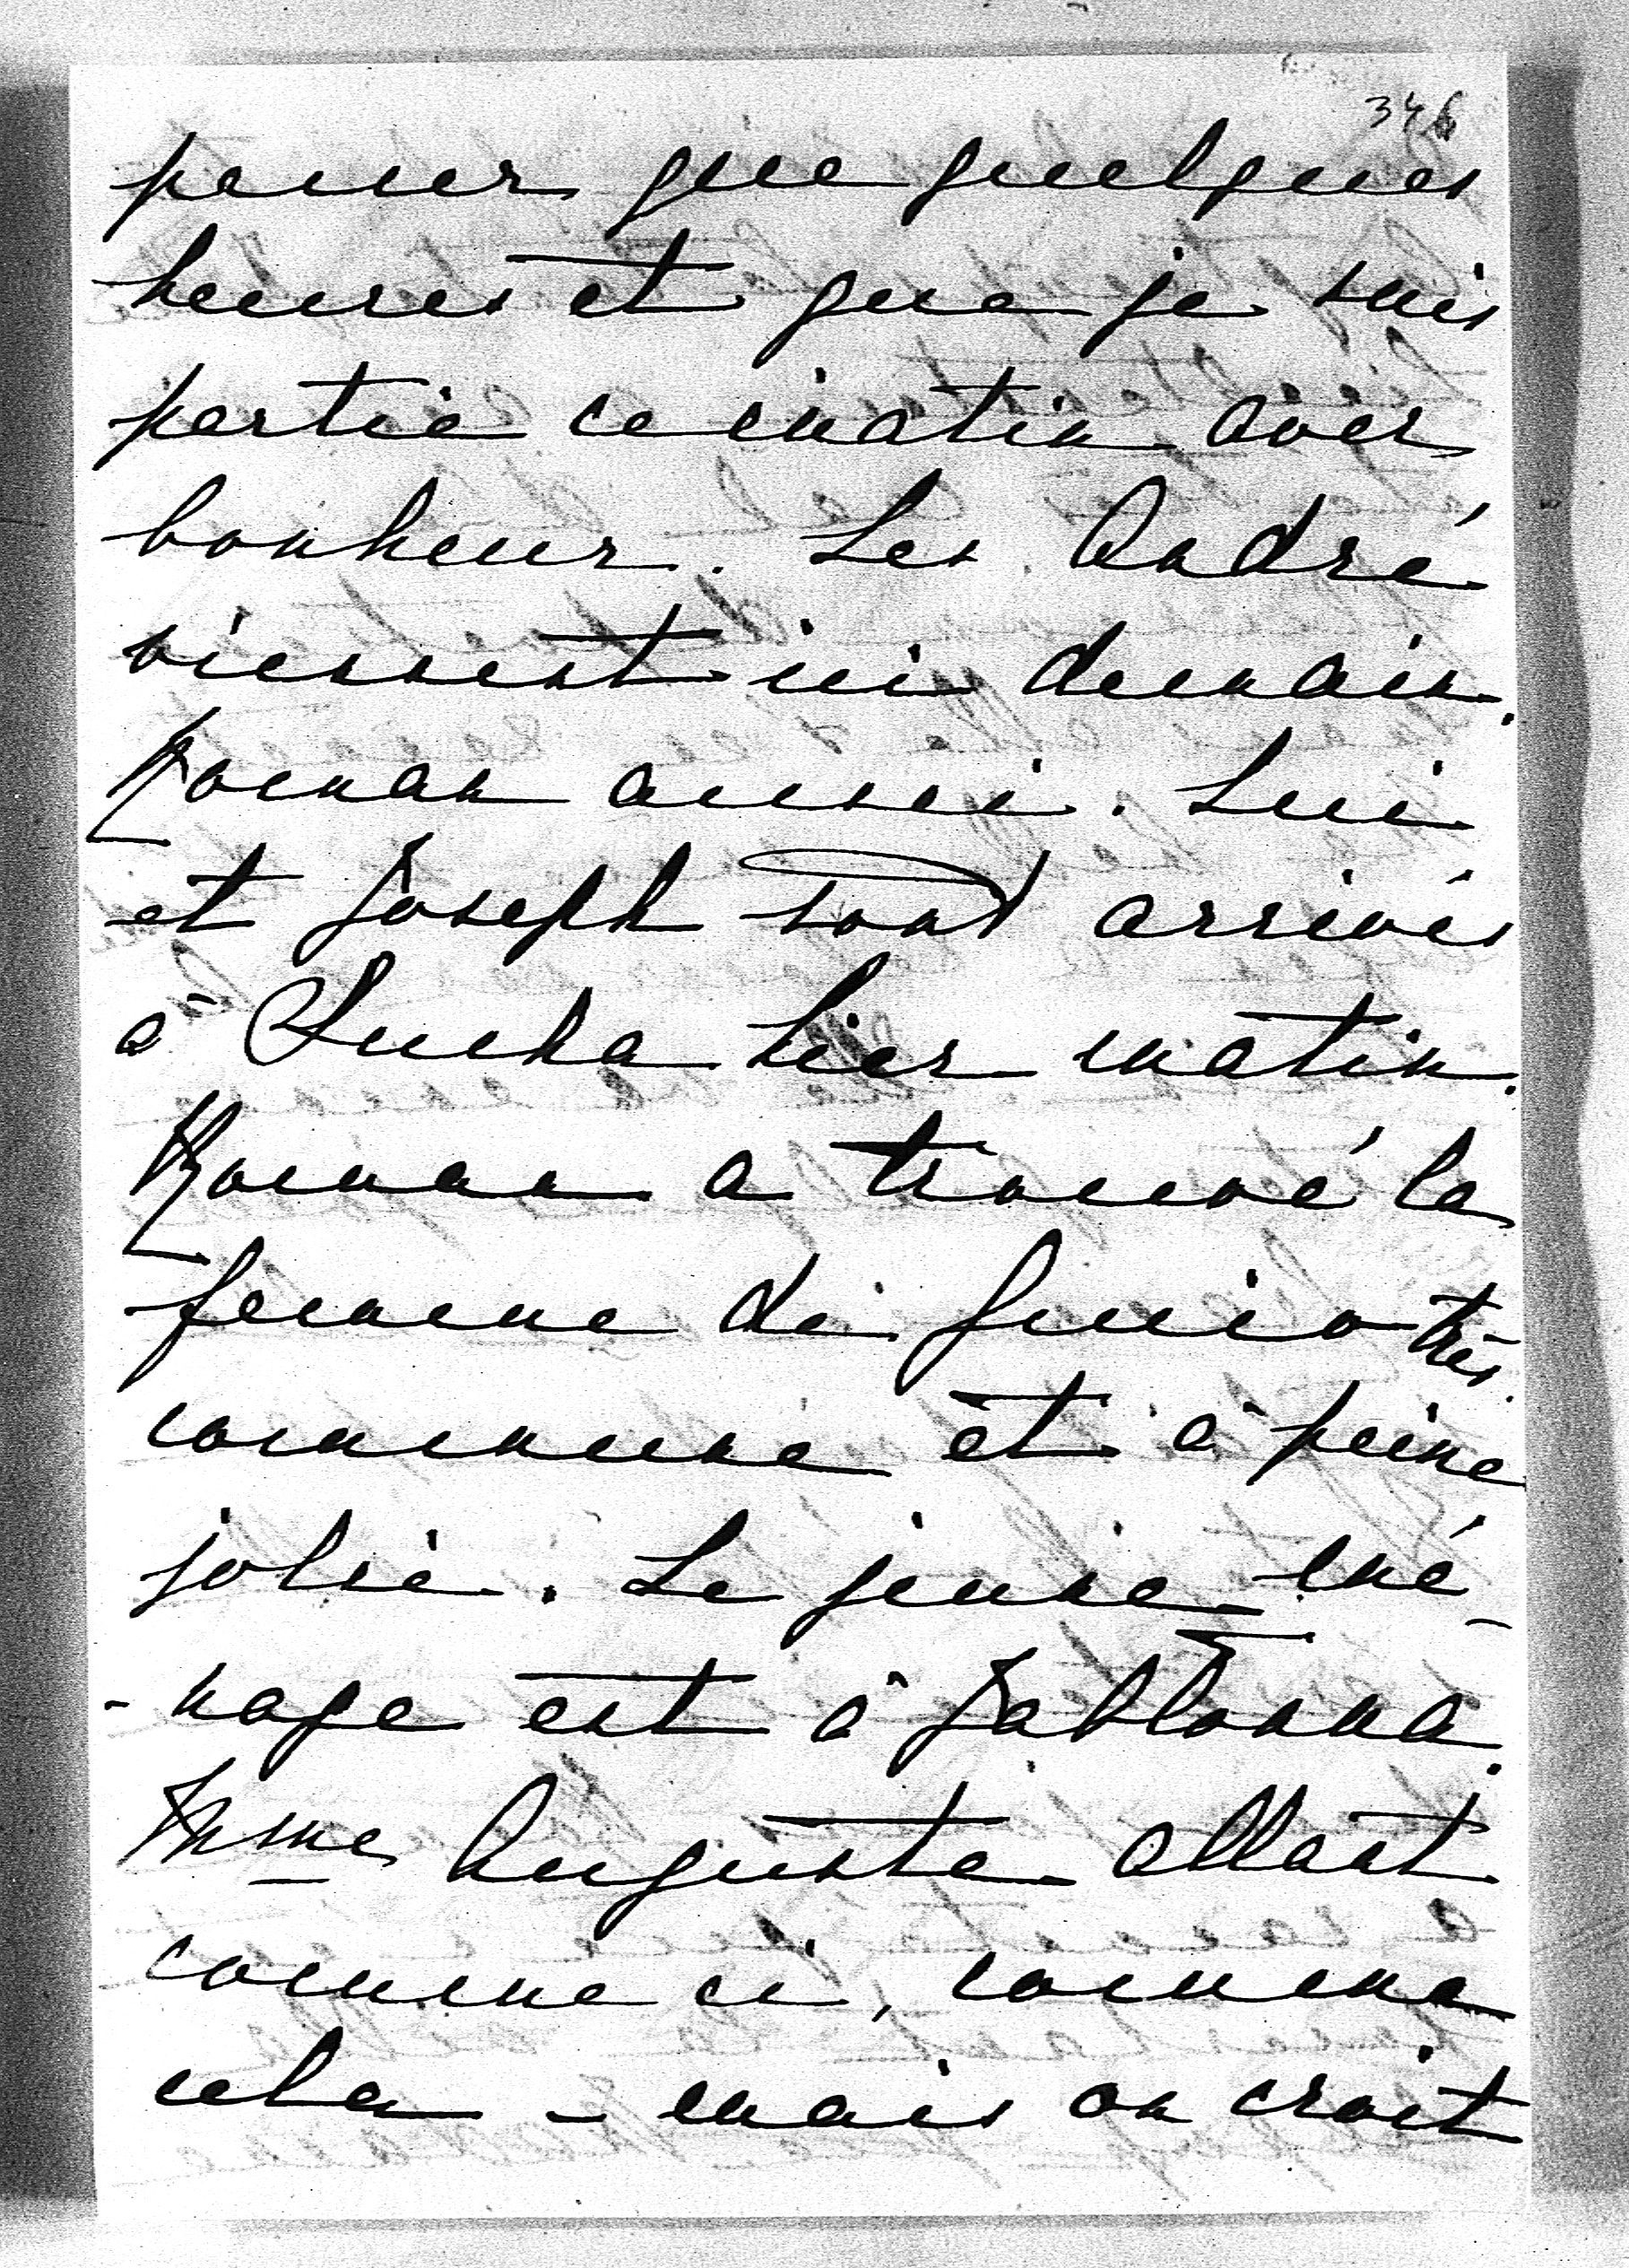 346
passer que quelques
heures et que je suis
partie ce matin avec
bonheur. Les André
viennent ici demain.
Roman aussi. Lui
et Joseph sont arrivés
à hier matin.
Roman a trouvé la
femme de Gucio très
commune et à peine
jolie. Le jeune mé-
-nage est à Jabłonna.
Mme Auguste allant
comme ci, comme
cela - mais on croit